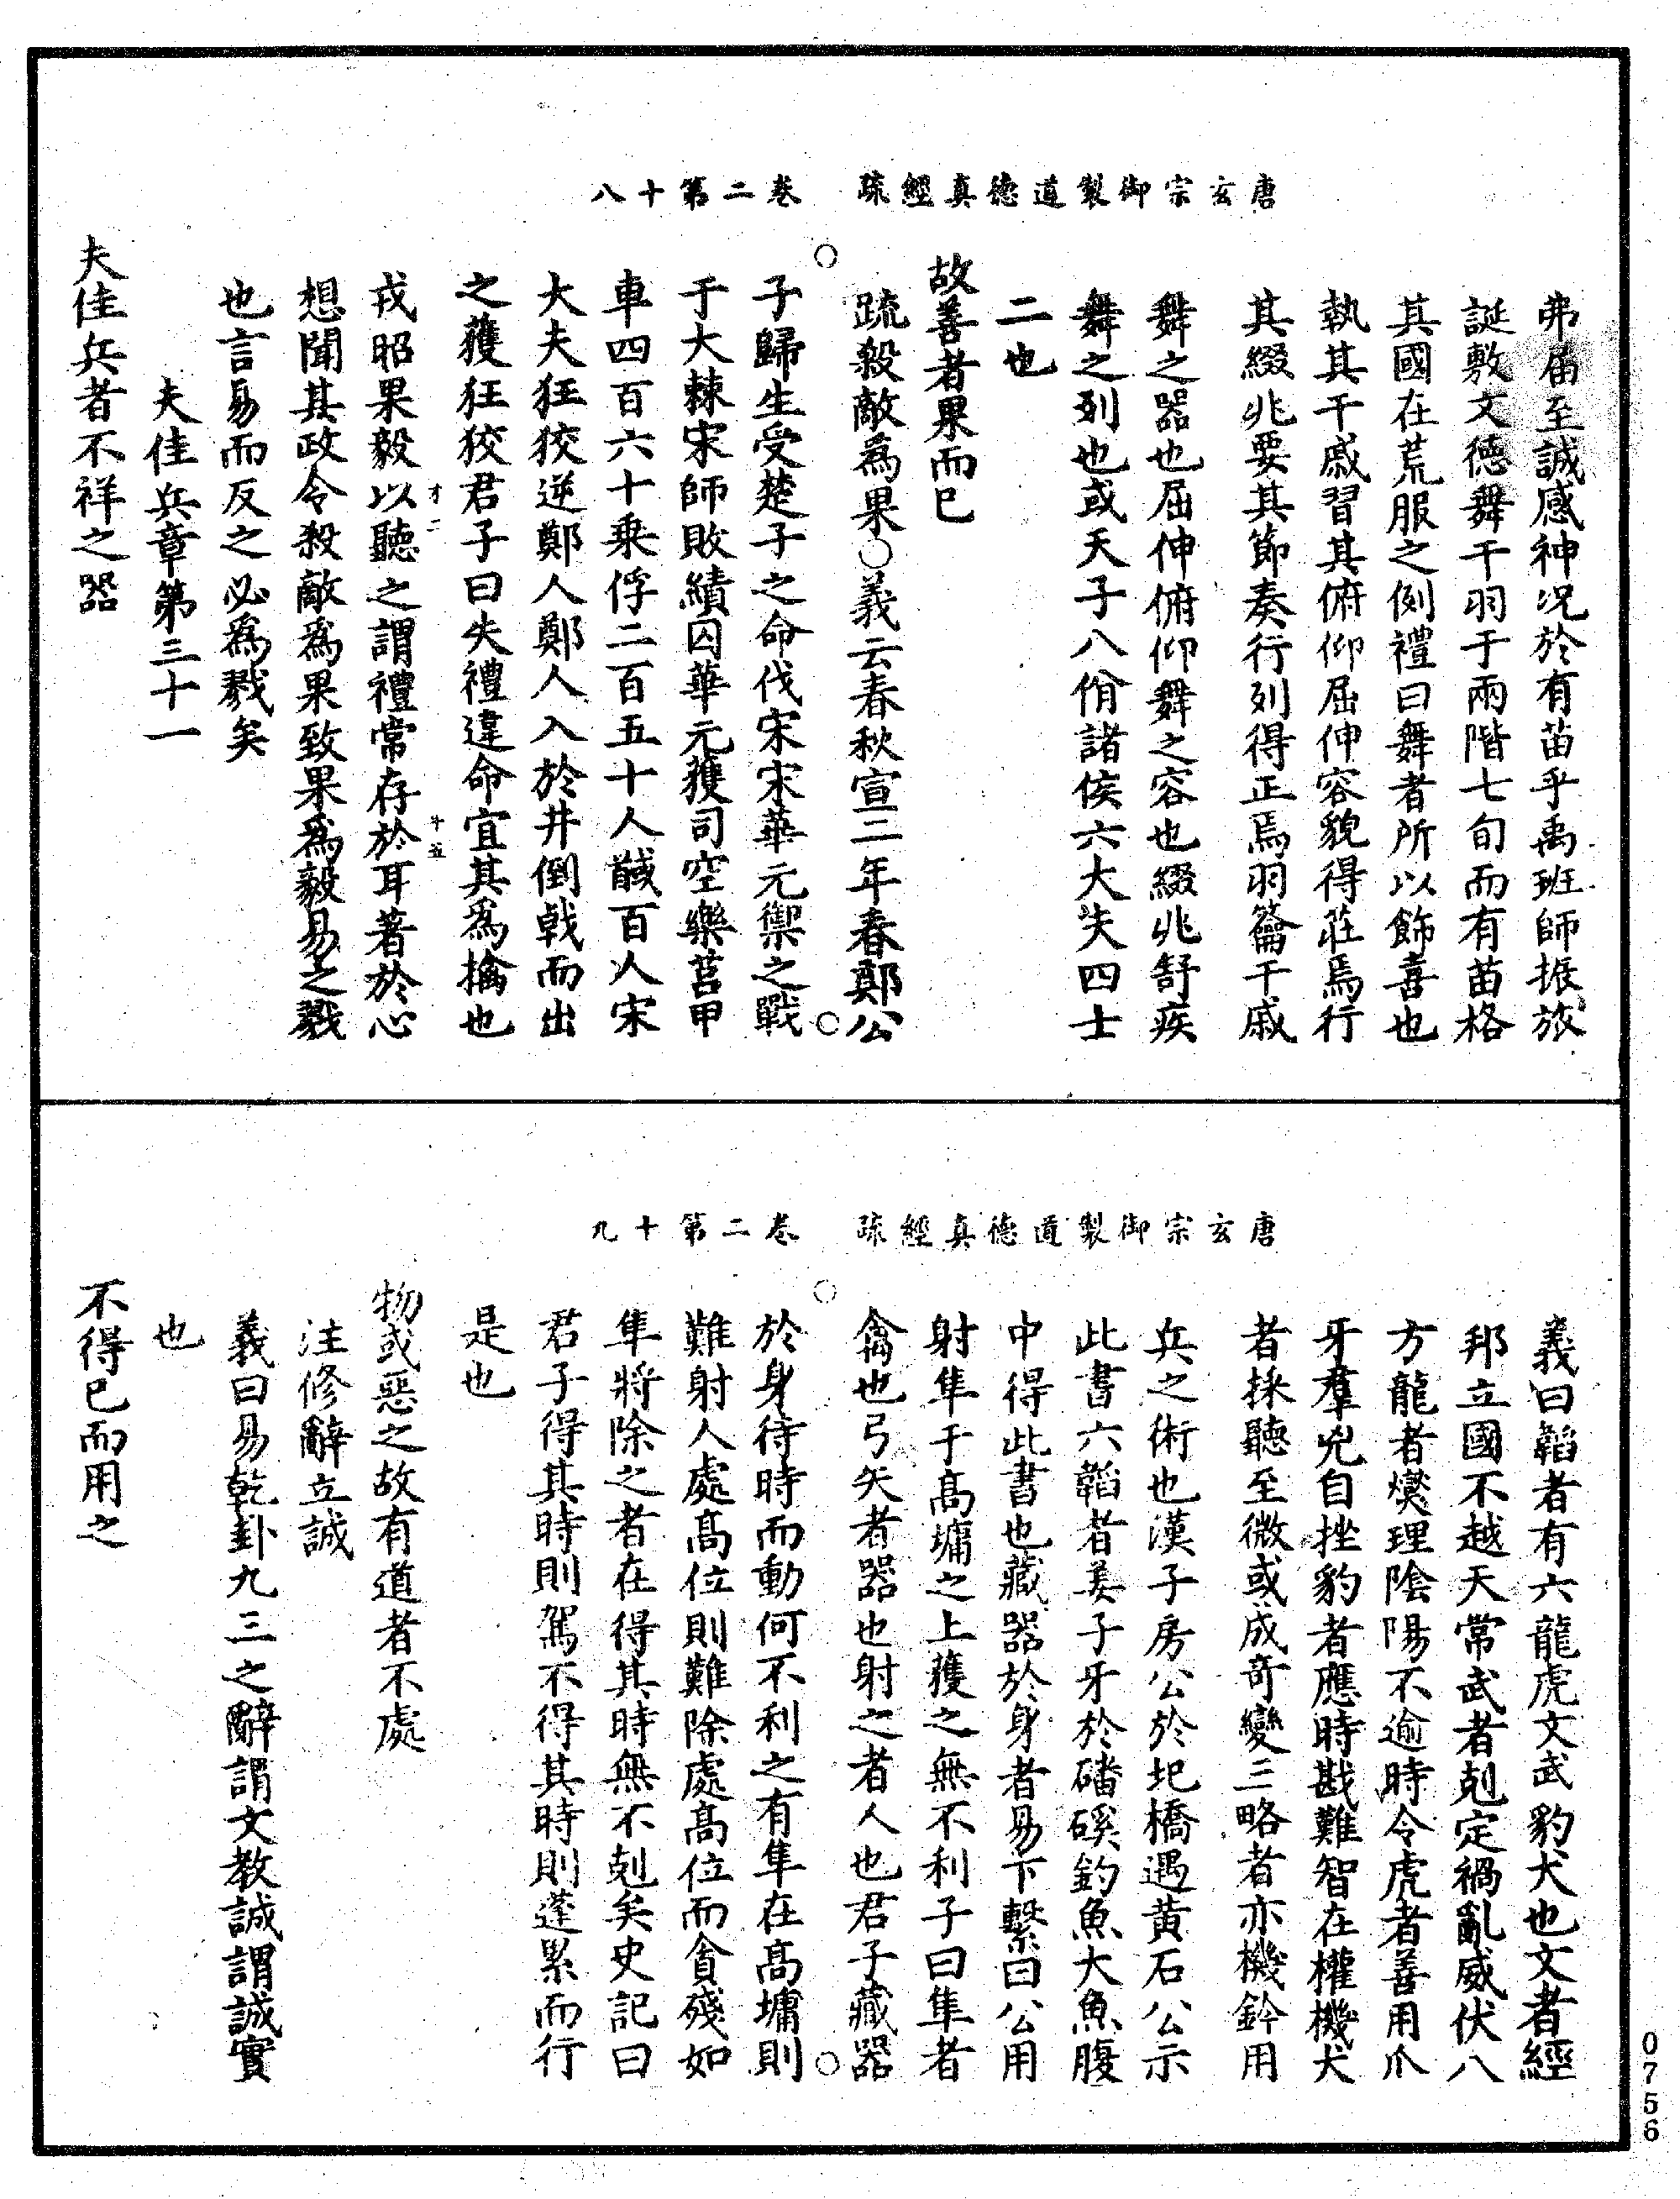 唐玄宗御製道德真經疏　卷二第十八
弗届至誠感神况於有苗乎禹班師振旅
誕敷文德舞干羽于兩階七旬而有苗格
其國在荒服之例禮曰舞者所以飾喜也
執其干戚習其俯仰屈伸容貌得莊焉行
其綴兆要其節奏行列得正焉羽籥干戚
舞之器也屈伸俯仰舞之容也綴兆舒疾
舞之列也或天子八佾諸侯六大夫四士
二也
故善者果而已
疏殺敵為果○義云春秋宣二年春鄭公
子歸生受楚子之命伐宋宋華元禦之戰
于大棘宋師敗績囚華元獲司空樂莒甲
車四百六十乘俘二百五十人馘百人宋
大夫狂狡逆鄭人鄭人入於井倒戟而出
之獲狂狡君子曰失禮違命宜其為擒也
戎昭果毅以聽之謂禮常存於耳著於心
想聞其政令殺敵為果致果為毅易之戮
也言易而反之必為戮矣
夫佳兵章第三十一
夫佳兵者不祥之器
唐玄宗御製道德真經疏　卷二第十九
義曰韜者有六龍虎文武豹犬也文者經
邦立國不越天常武者剋定禍亂威伏八
方龍者燮理陰陽不逾時令虎者善用爪
牙羣兇自挫豹者應時戡難智在權機犬
者採聽至微或成奇變三略者亦機鈐用
兵之術也漢子房公於圯橋遇黃石公示
此書六韜者姜子牙於磻磎釣魚大魚腹
中得此書也藏器於身者易下繫曰公用
射隼于高墉之上獲之無不利子曰隼者
禽也弓矢者器也射之者人也君子藏器
於身待時而動何不利之有隼在高墉則
難射人處高位則難除處高位而貪殘如
隼將除之者在得其時無不剋矣史記曰
君子得其時則駕不得其時則蓬累而行
是也
物或惡之故有道者不處
注修辭立誠
義曰易乾卦九三之辭謂文教誠謂誠實
也
不得已而用之
0756